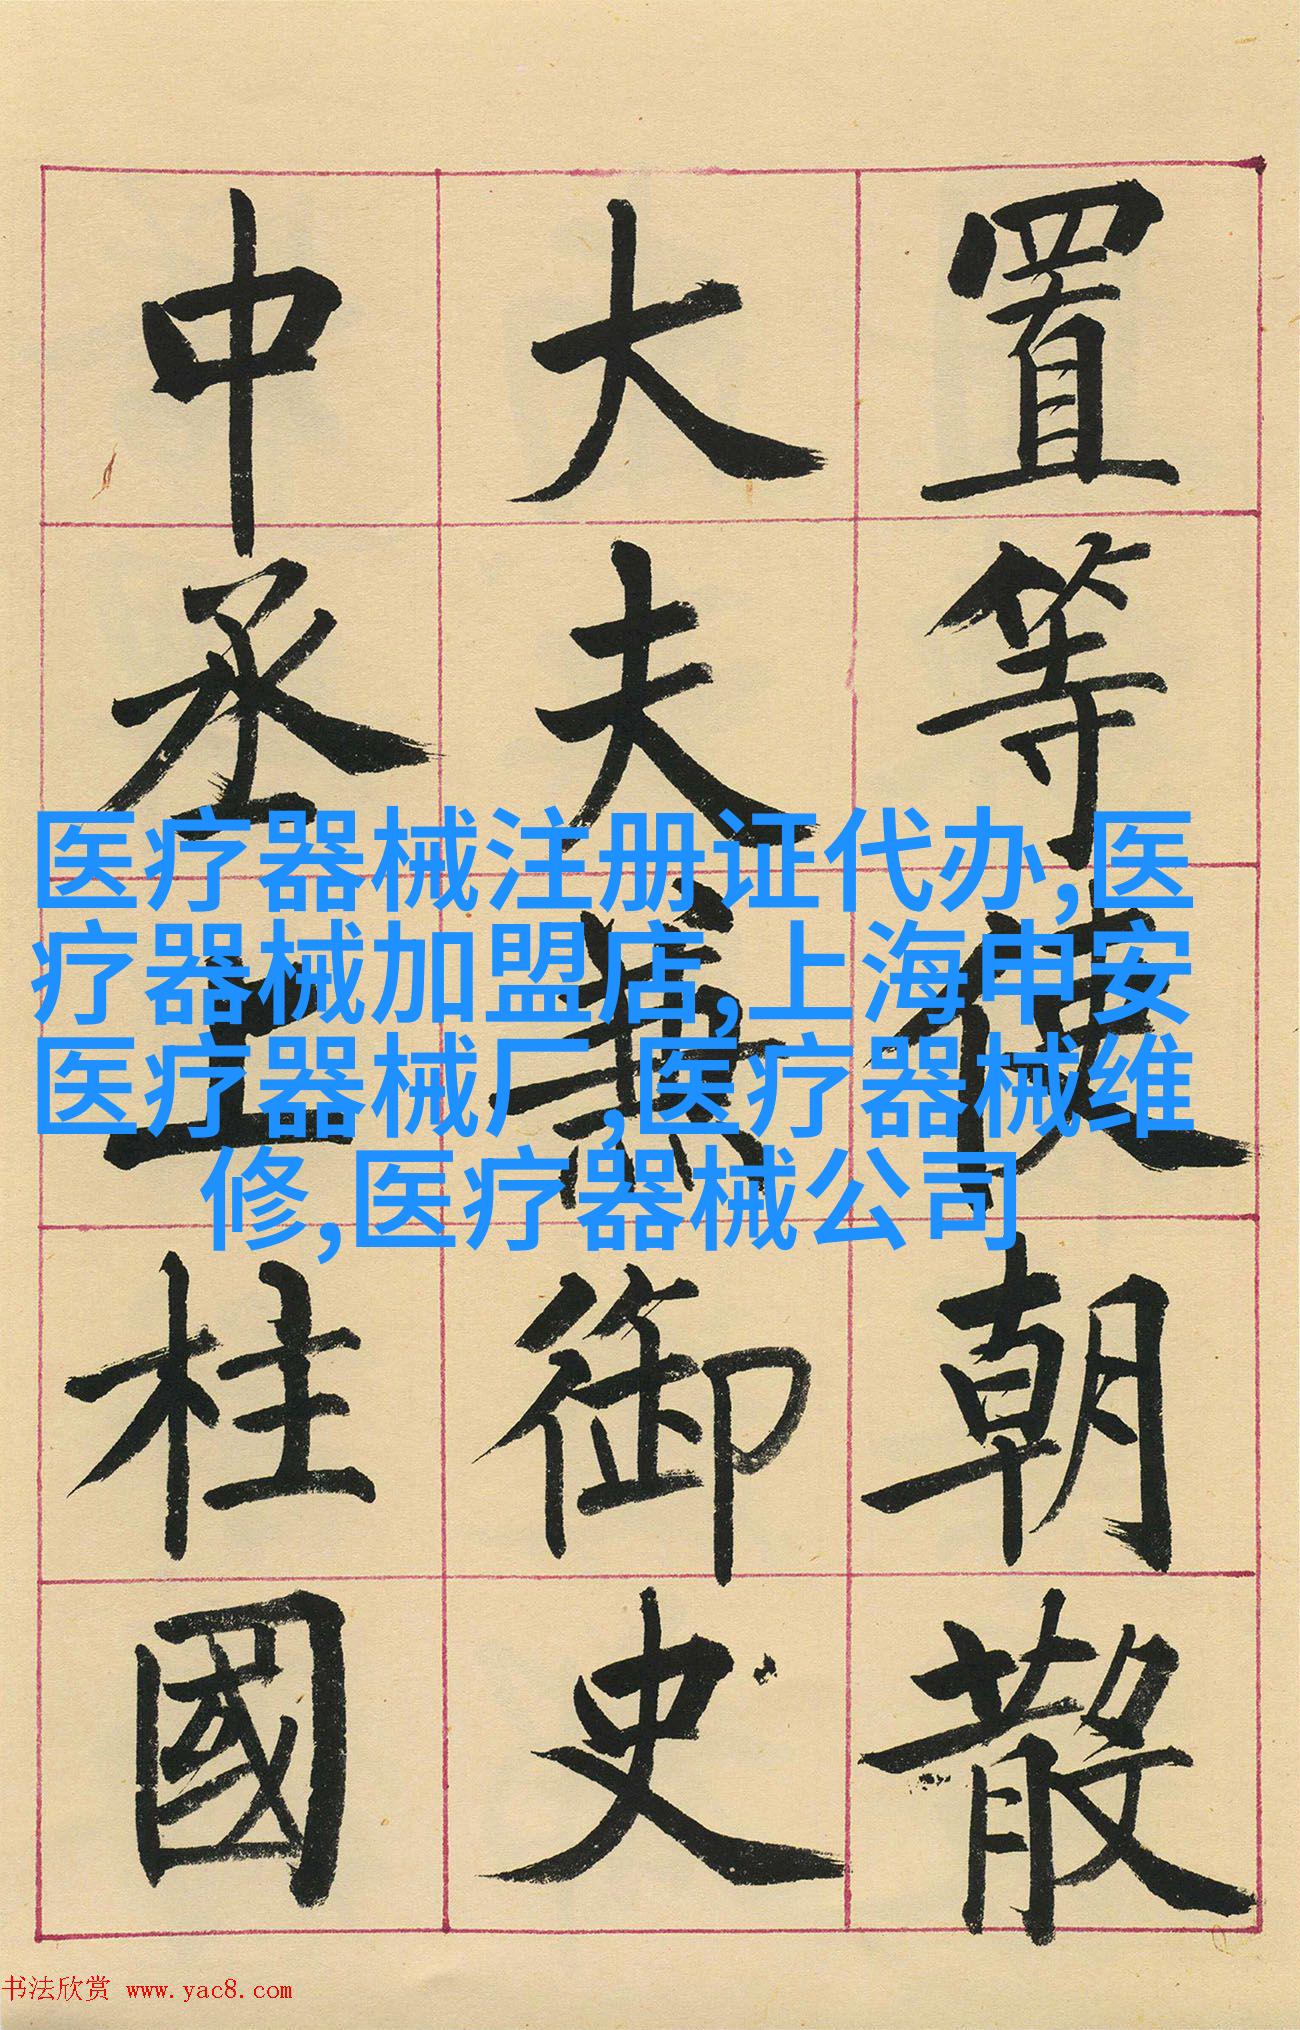 置等使朝散
大夫兼御史
中丞上柱國
医疗器械注册证代办,医
疗器械加盟店,上海申安
医疗器械厂,医疗器械维
修,医疗器械公司
书法欣赏 www.yac8.com